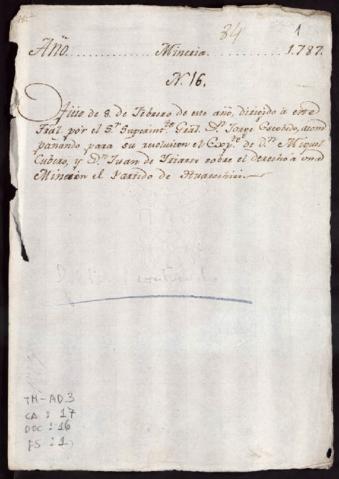 84 1
Año. Mineria. 1787.
N. 16.
Oficio de 8. de Febrero de este año, dirigido à este
Tral por el Sr. Superintte. Gral. Dn. Jorge Escobedo, acom
pañando para su resolucion el Expte. de Dn. Miguel
Cubero, y Dn. Juan de Yriarte sobre el derecho a una
Mina en el Partido de Huarochiri.
TM-AD3
CA : 17
DOC : 16
FS : 1